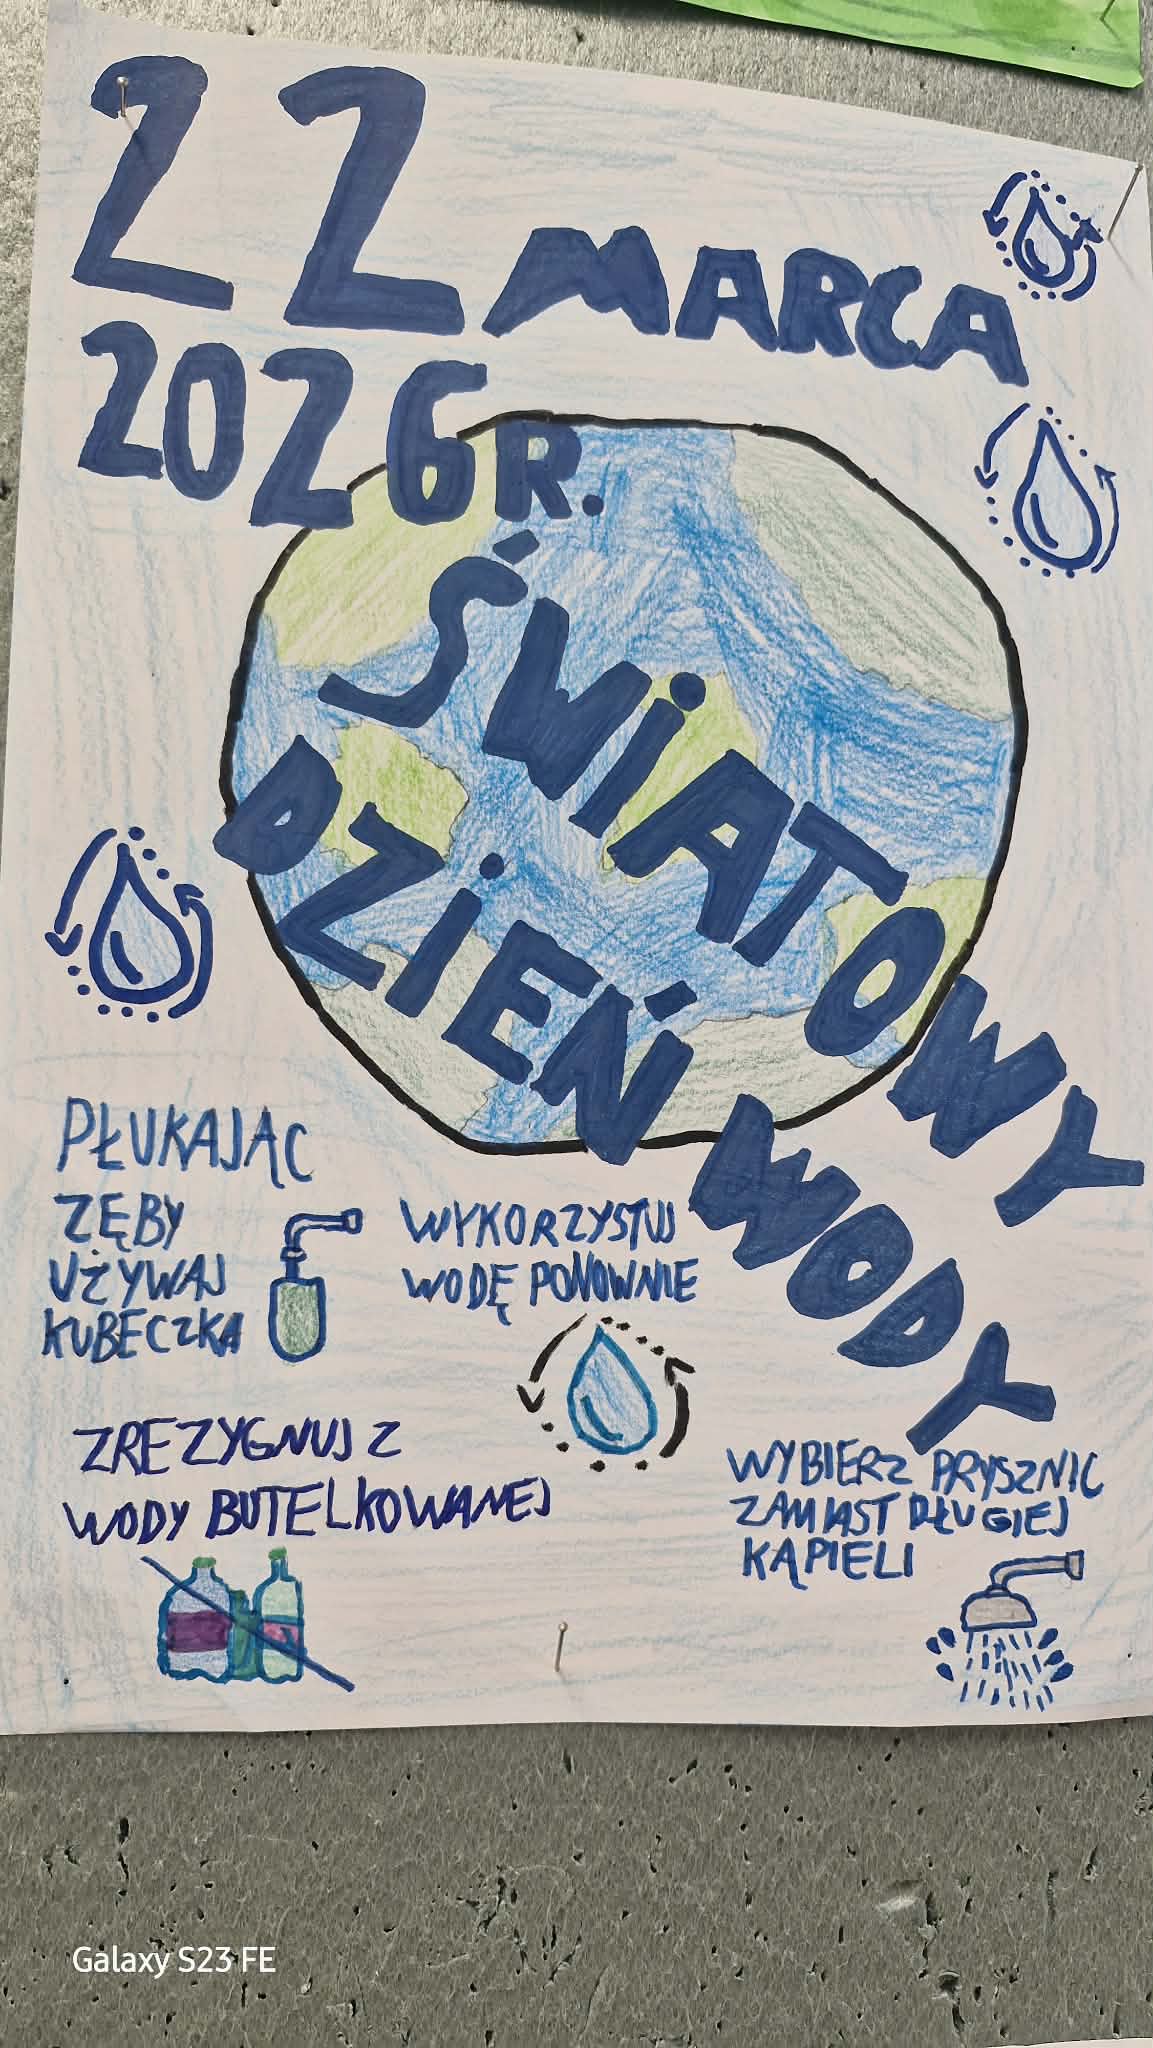 22 MARCA
2026 R.
ŚWIATOWY
DZIEŃ WODY
PŁUKAJĄC
ZĘBY
UŻYWAJ
KUBECZKA
WYKORZYSTUJ
WODĘ PONOWNIE
ZREZYGNUJ Z
WODY BUTELKOWANEJ
WYBIERZ PRYSZNIC
ZAMIAST DŁUGIEJ
KĄPIELI
Galaxy S23 FE